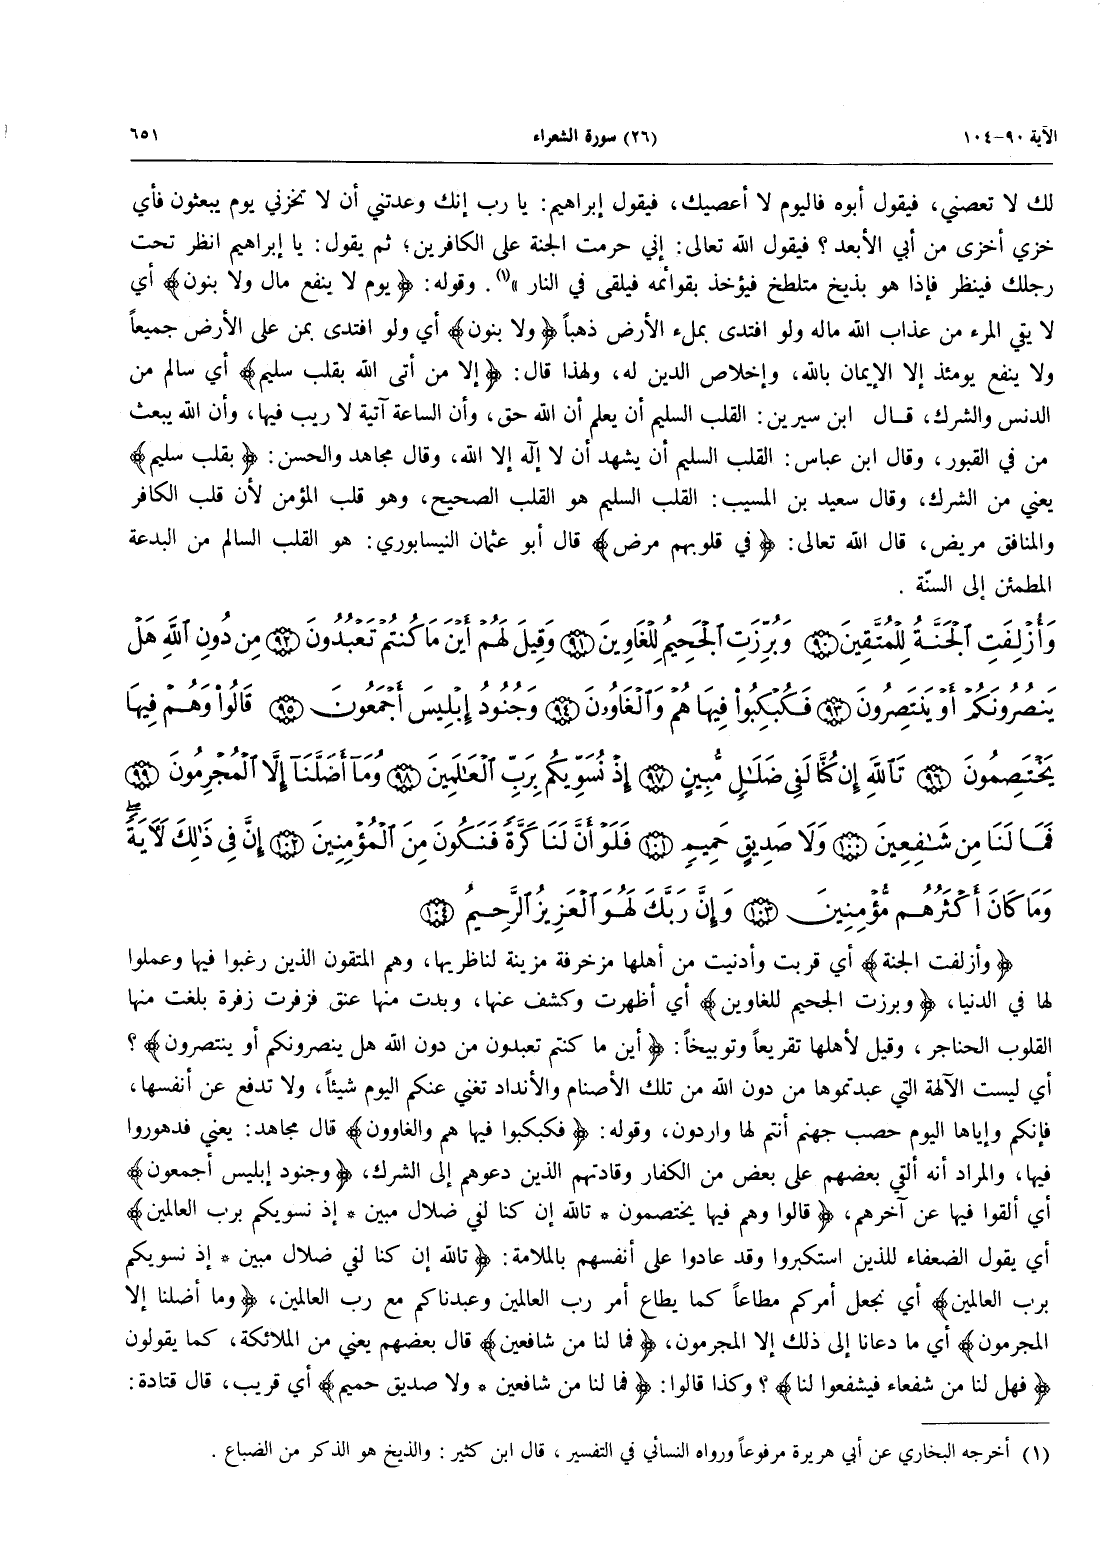 الآية ٩٠-١٠٤ (٢٦) سورة الشعراء ٦٥١
لك لا تعصني، فيقول أبوه فاليوم لا أعصيك، فيقول إبراهيم: يا رب إنك وعدتني أن لا تخزني يوم يبعثون فأي
خزي أخزى من أبي الأبعد؟ فيقول الله تعالى: إني حرمت الجنة على الكافرين؛ ثم يقول: يا إبراهيم انظر تحت
رجلك فينظر فإذا هو بذيخ متلطخ فيؤخذ بقوائمه فيلقى في النار»(١). وقوله: ﴿يوم لا ينفع مال ولا بنون﴾ أي
لا يقي المرء من عذاب الله ماله ولو افتدى بملء الأرض ذهباً ﴿ولا بنون﴾ أي ولو افتدى بمن على الأرض جميعاً
ولا ينفع يومئذ إلا الإيمان بالله، وإخلاص الدين له، ولهذا قال: ﴿إلا من أتى الله بقلب سليم﴾ أي سالم من
الدنس والشرك، قال ابن سيرين: القلب السليم أن يعلم أن الله حق، وأن الساعة آتية لا ريب فيها، وأن الله يبعث
من في القبور، وقال ابن عباس: القلب السليم أن يشهد أن لا إلٓه إلا الله، وقال مجاهد والحسن: ﴿بقلب سليم﴾
يعني من الشرك، وقال سعيد بن المسيب: القلب السليم هو القلب الصحيح، وهو قلب المؤمن لأن قلب الكافر
والمنافق مريض، قال الله تعالى: ﴿في قلوبهم مرض﴾ قال أبو عثمان النيسابوري: هو القلب السالم من البدعة
المطمئن إلى السنّة .
وَأُزْلِفَتِ ٱلْجَنَّةُ لِلْمُتَّقِينَ ﴿٩٠﴾ وَبُرِّزَتِ ٱلْجَحِيمُ لِلْغَاوِينَ ﴿٩١﴾ وَقِيلَ لَهُمْ أَيْنَ مَا كُنتُمْ تَعْبُدُونَ ﴿٩٢﴾ مِن دُونِ ٱللَّهِ هَلْ
يَنصُرُونَكُمْ أَوْ يَنتَصِرُونَ ﴿٩٣﴾ فَكُبْكِبُوا۟ فِيهَا هُمْ وَٱلْغَاوُۥنَ ﴿٩٤﴾ وَجُنُودُ إِبْلِيسَ أَجْمَعُونَ ﴿٩٥﴾ قَالُوا۟ وَهُمْ فِيهَا
يَخْتَصِمُونَ ﴿٩٦﴾ تَٱللَّهِ إِن كُنَّا لَفِى ضَلَٰلٍ مُّبِينٍ ﴿٩٧﴾ إِذْ نُسَوِّيكُم بِرَبِّ ٱلْعَٰلَمِينَ ﴿٩٨﴾ وَمَآ أَضَلَّنَآ إِلَّا ٱلْمُجْرِمُونَ ﴿٩٩﴾
فَمَا لَنَا مِن شَٰفِعِينَ ﴿١٠٠﴾ وَلَا صَدِيقٍ حَمِيمٍ ﴿١٠١﴾ فَلَوْ أَنَّ لَنَا كَرَّةً فَنَكُونَ مِنَ ٱلْمُؤْمِنِينَ ﴿١٠٢﴾ إِنَّ فِى ذَٰلِكَ لَءَايَةً ۖ
وَمَا كَانَ أَكْثَرُهُم مُّؤْمِنِينَ ﴿١٠٣﴾ وَإِنَّ رَبَّكَ لَهُوَ ٱلْعَزِيزُ ٱلرَّحِيمُ ﴿١٠٤﴾
﴿وأزلفت الجنة﴾ أي قربت وأدنيت من أهلها مزخرفة مزينة لناظريها، وهم المتقون الذين رغبوا فيها وعملوا
لها في الدنيا، ﴿وبرزت الجحيم للغاوين﴾ أي أظهرت وكشف عنها، وبدت منها عنق فزفرت زفرة بلغت منها
القلوب الحناجر، وقيل لأهلها تقريعاً وتوبيخاً: ﴿أين ما كنتم تعبدون من دون الله هل ينصرونكم أو ينتصرون﴾؟
أي ليست الآلهة التي عبدتموها من دون الله من تلك الأصنام والأنداد تغني عنكم اليوم شيئاً، ولا تدفع عن أنفسها،
فإنكم وإياها اليوم حصب جهنم أنتم لها واردون، وقوله: ﴿فكبكبوا فيها هم والغاوون﴾ قال مجاهد: يعني فدهوروا
فيها، والمراد أنه ألقي بعضهم على بعض من الكفار وقادتهم الذين دعوهم إلى الشرك، ﴿وجنود إبليس أجمعون﴾
أي ألقوا فيها عن آخرهم، ﴿قالوا وهم فيها يختصمون * تالله إن كنا لفي ضلال مبين * إذ نسويكم برب العالمين﴾
أي يقول الضعفاء للذين استكبروا وقد عادوا على أنفسهم بالملامة: ﴿تالله إن كنا لفي ضلال مبين * إذ نسويكم
برب العالمين﴾ أي نجعل أمركم مطاعاً كما يطاع أمر رب العالمين وعبدناكم مع رب العالمين، ﴿وما أضلنا إلا
المجرمون﴾ أي ما دعانا إلى ذلك إلا المجرمون، ﴿فما لنا من شافعين﴾ قال بعضهم يعني من الملائكة، كما يقولون
﴿فهل لنا من شفعاء فيشفعوا لنا﴾؟ وكذا قالوا: ﴿فما لنا من شافعين * ولا صديق حميم﴾ أي قريب، قال قتادة:
(١) أخرجه البخاري عن أبي هريرة مرفوعاً ورواه النسائي في التفسير، قال ابن كثير: والذيخ هو الذكر من الضباع .